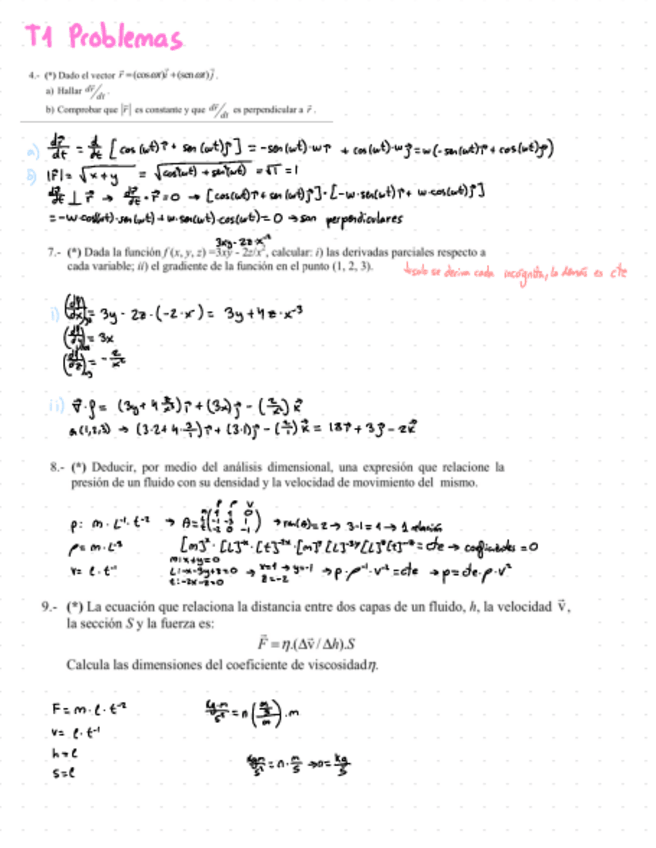 T1 Problemas
4.- (*) Dado el vector r⃗ =(cos ωt)i⃗ +(sen ωt)j⃗ .
a) Hallar dr⃗/dt .
b) Comprobar que |r⃗| es constante y que dr⃗/dt es perpendicular a r⃗ .
a) dr⃗/dt = d/dt [cos(ωt)i⃗ + sen(ωt)j⃗] = -sen(ωt)·wi⃗ + cos(ωt)·wj⃗ = w(-sen(ωt)i⃗ + cos(ωt)j⃗)
b) |r⃗| = √x+y = √cos²(ωt) + sen²(ωt) = √1 = 1
dr⃗/dt ⊥ r⃗ → dr⃗/dt · r⃗ = 0 → [cos(ωt)i⃗ + sen(ωt)j⃗]·[-w·sen(ωt)i⃗ + w·cos(ωt)j⃗]
= -w·cos(ωt)·sen(ωt) + w·sen(ωt)·cos(ωt) = 0 → son perpendiculares
3xy - 2z·x⁻²
7.- (*) Dada la función f (x, y, z) =3xy - 2z/x², calcular: i) las derivadas parciales respecto a
cada variable; ii) el gradiente de la función en el punto (1, 2, 3).
solo se deriva cada incógnita, lo demás es cte
i) (df/dx) = 3y - 2z·(-2·x) = 3y + 4z·x⁻³
(df/dy) = 3x
(df/dz) = -2/x²
ii) ∇·f = (3y + 4 z/x³)i⃗ + (3x)j⃗ - (2/x²)k⃗
a(1,2,3) → (3·2 + 4·3/1)i⃗ + (3·1)j⃗ - (2/1)k⃗ = 18i⃗ + 3j⃗ - 2k⃗
8.- (*) Deducir, por medio del análisis dimensional, una expresión que relacione la
presión de un fluido con su densidad y la velocidad de movimiento del mismo.
p: m·L⁻¹·t⁻² → ran(A) = 2 → 3-1 = 1 → 1 relación
ρ = m·L⁻³ = cte → coeficientes = 0
v = l·t⁻¹ m: x+y=0
L: -x-3y+z=0 → x=1 → y=-1 z=-2 → p·ρ⁻¹·v⁻² = cte → p = cte·ρ·v²
t: -2x-z=0
9.- (*) La ecuación que relaciona la distancia entre dos capas de un fluido, h, la velocidad v⃗,
la sección S y la fuerza es:
F⃗ = η.(Δv⃗ / Δh).S
Calcula las dimensiones del coeficiente de viscosidad η.
F = m·l·t⁻² kg·m/s² = n(m/s/m)·m
v = l·t⁻¹
h = l
s = l kg·m/s² = n·m/s → n = kg/s